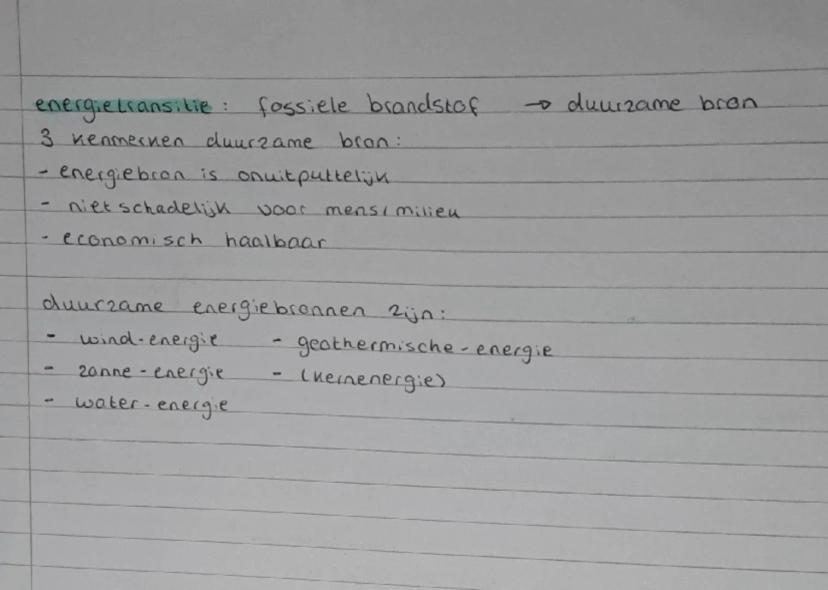 energietransitie: fossiele brandstof → duurzame bron
3 kenmerken duurzame bron:
- energiebron is onuitputtelijk
- niet schadelijk voor mens/milieu
- economisch haalbaar
duurzame energiebronnen zijn:
- wind-energie - geothermische-energie
- zonne-energie - (kernenergie)
- water-energie